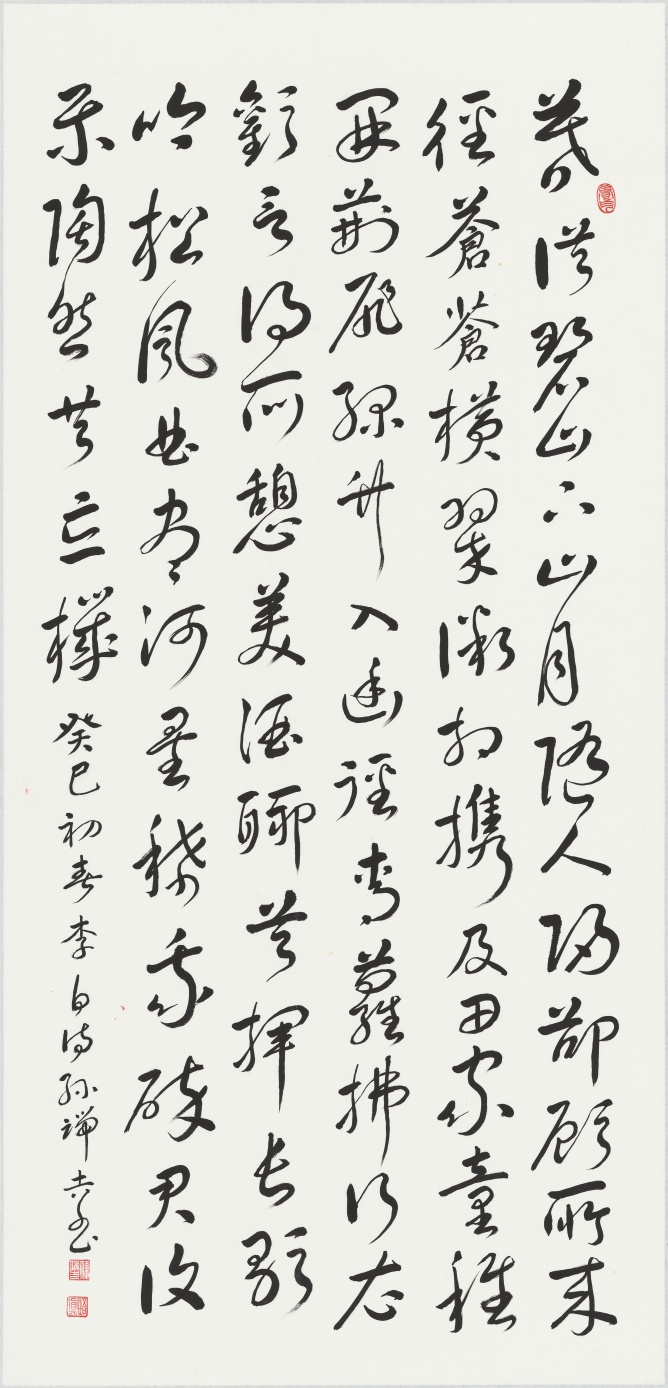 暮從碧山下山月隨人歸卻顧所來
徑蒼蒼橫翠微相攜及田家童稚
開荊扉綠竹入幽徑青蘿拂行衣
歡言得所憩美酒聊共揮長歌
吟松風曲盡河星稀我醉君復
樂陶然共忘機
癸巳初春李白詩孫 吉書